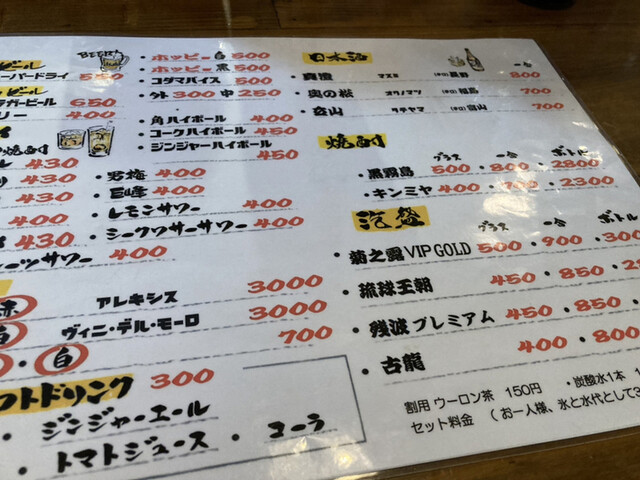 ビール
BEER
ーパードライ 550
ビール
ラガービール 650
リー 400
焼酎
430
400
430
ーツサワー 400
・ホッピー白 500
・ホッピー黒 500
・コダマバイス 500
・外 300 中 250
・角ハイボール 400
・コークハイボール 450
・ジンジャーハイボール 450
・野梅 400
・巨峰 400
・レモンサワー 400
・シークワサーサワー 400
赤 アレキシス 3000
白 ヴィニ・デル・モーロ 3000
・白 700
フトドリンク 300
・ジンジャーエール
・トマトジュース ・コーラ
日本酒 一合
・真澄 マスミ (辛口)長野 800
・奥の松 オクノマツ (辛口)福島 700
・立山 タテヤマ (辛口)富山 700
焼酎 グラス 一合 ボトル
・黒霧島 500・800・2800
・キンミヤ 400・700・2300
泡盛 グラス 一合 ボトル
・菊之露 VIP GOLD 500・900・300
・琉球王朝 450・850・28
・残波プレミアム 450・850・2
・古龍 400・800
割用 ウーロン茶 150円 ・炭酸水1本 1
セット料金 (お一人様、氷と水代として3